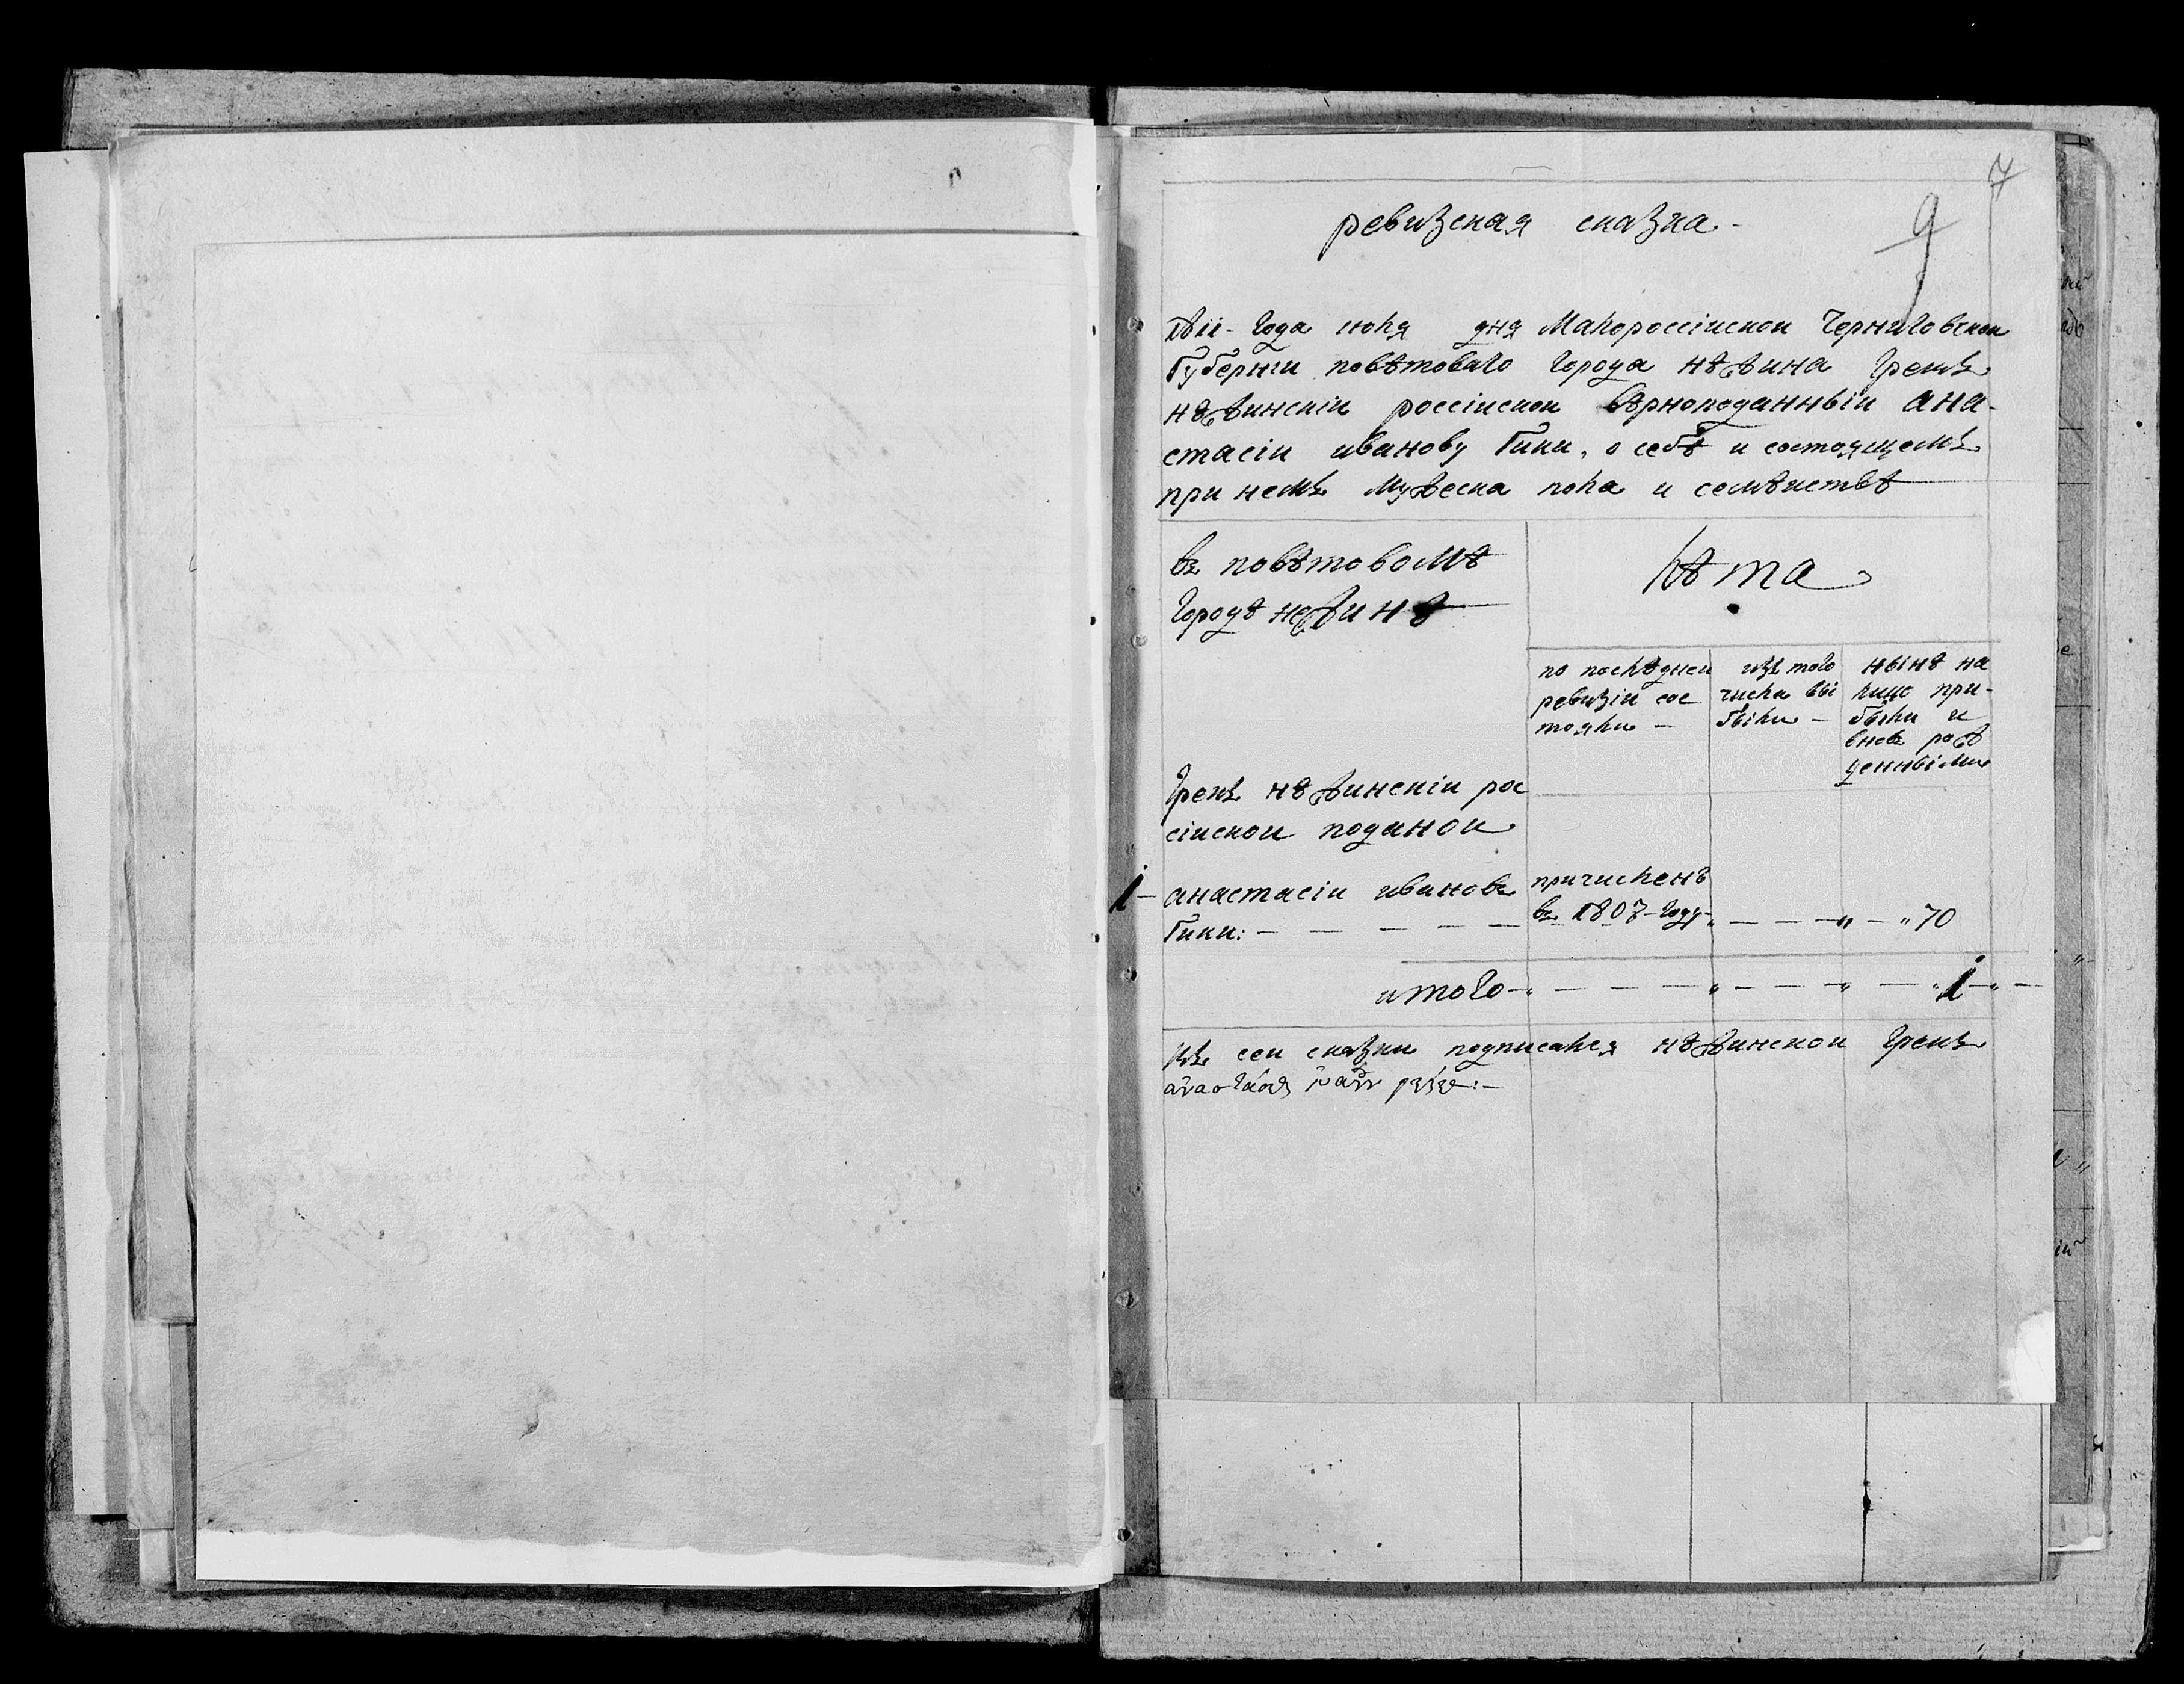 7
9
ревизская сказка -
1811 - года июля дня Малороссийской Черниговской
Губернии повѣтоваго города нѣжина грекъ
нѣжинскіи россійской вѣрноподанныи ана-
стасіи иванову Гики, о себѣ и состоящемъ
при немъ мужеска пола и семѣиствѣ
въ повѣтовомѣ
городѣ нежинѣ
лѣта
по послѣднеи
ревизіи сос
тояли -
изъ того
числа вы
были -
нынѣ на
лицо при-
были и
вновь рож
денными
грекъ нѣжинскіи рос
сіиской поданои
1 - анастасіи ивановъ
Гики: - - - - -
причисленъ
въ 1807 - году - - - - " - " 70
итого - " - - - - " - - - " - " 1 - " -
Къ сеи сказки подписался нѣжинскои грекъ